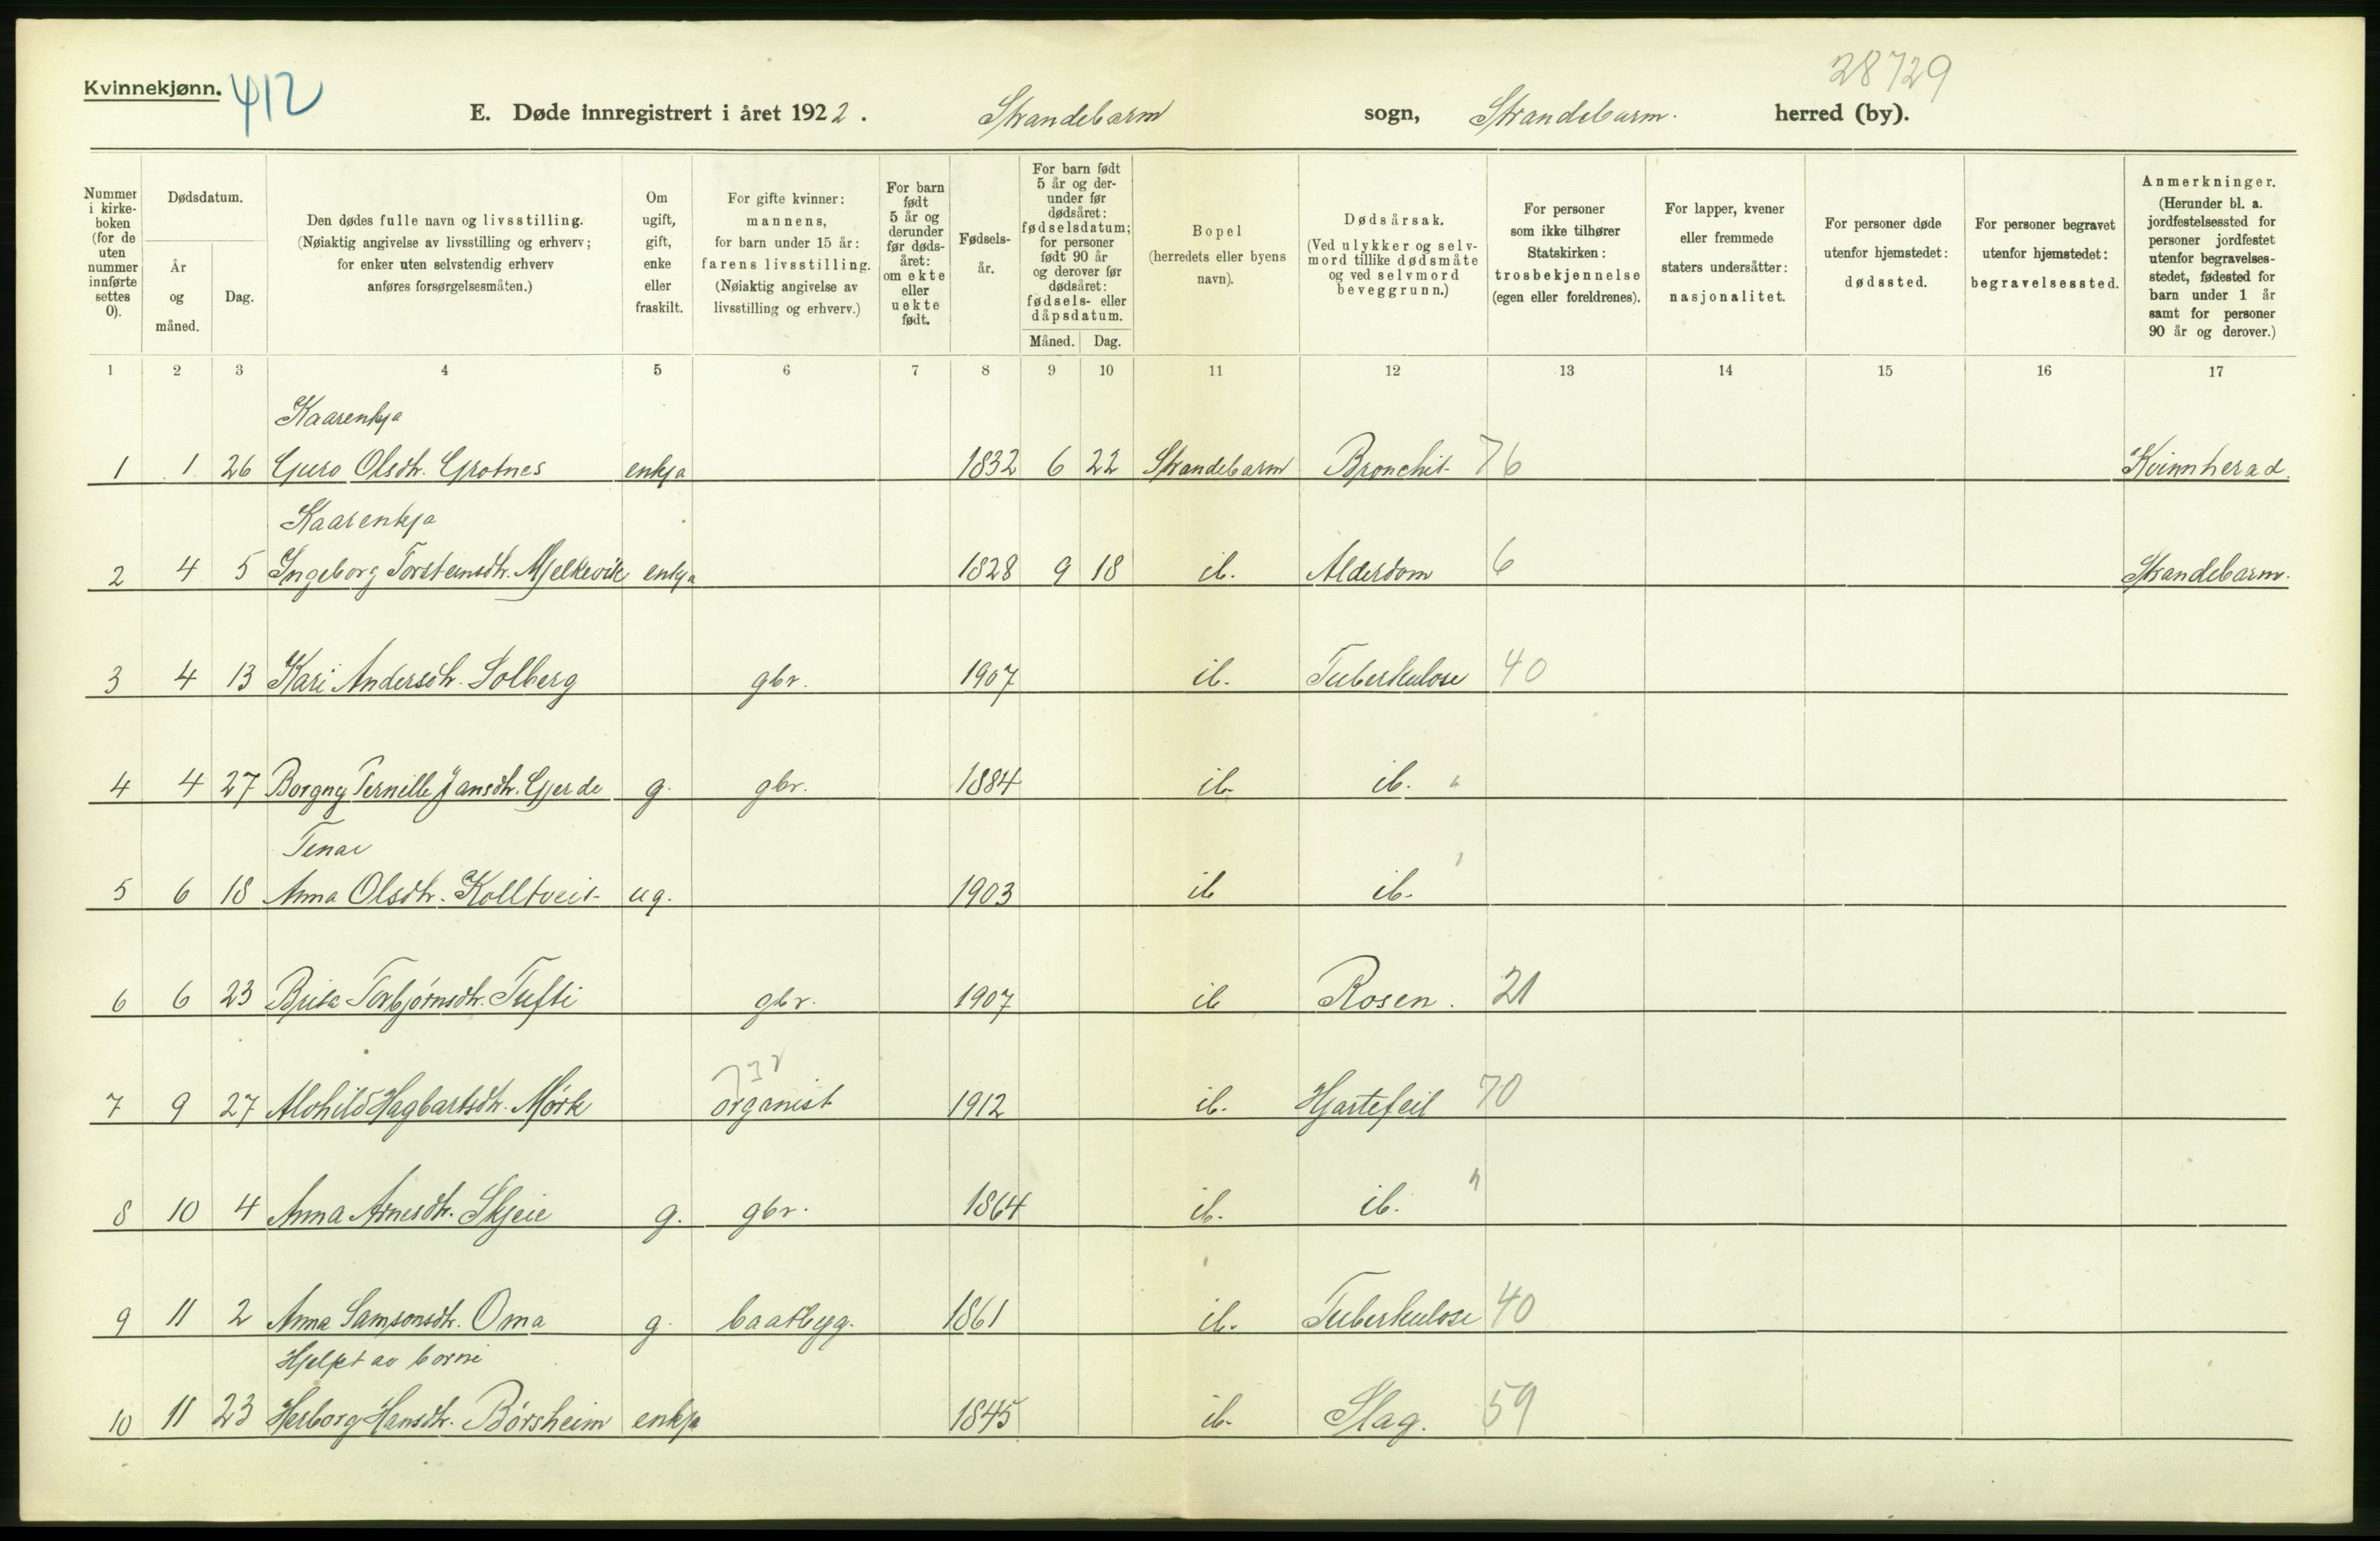 Kvinnekjønn. 412
28729
E. Døde innregistrert i året 1922. Strandebarm sogn, Strandebarm. herred (by).
Nummer i kirke- boken (for de uten nummer innførte settes 0).
Dødsdatum.
År og måned.
Dag.
Den dødes fulle navn og livsstilling.
(Nøiaktig angivelse av livsstilling og erhverv;
for enker uten selvstendig erhverv
anføres forsørgelsesmåten.)
Om ugift, gift, enke eller fraskilt.
For gifte kvinner: mannens, for barn under 15 år: farens livsstilling. (Nøiaktig angivelse av livsstilling og erhverv.)
For barn født 5 år og derunder før døds- året: om ekte eller uekte født.
Fødsels- år.
For barn født 5 år og der- under før dødsåret: fødselsdatum; for personer født 90 år og derover før dødsåret: fødsels- eller dåpsdatum.
Måned. Dag.
Bopel (herredets eller byens navn).
Dødsårsak. (Ved ulykker og selv- mord tillike dødsmåte og ved selvmord beveggrunn.)
For personer som ikke tilhører Statskirken: trosbekjennelse (egen eller foreldrenes).
For lapper, kvener eller fremmede staters undersåtter: nasjonalitet.
For personer døde utenfor hjemstedet: dødssted.
For personer begravet utenfor hjemstedet: begravelsessted.
Anmerkninger. (Herunder bl. a. jordfestelsessted for personer jordfestet utenfor begravelses- stedet, fødested for barn under 1 år samt for personer 90 år og derover.)
1 2 3 4 5 6 7 8 9 10 11 12 13 14 15 16 17
Kaarenkja
1 1 26 Guro Olsdtr. Grotnes enkja 1832 6 22 Strandebarm Bronchit 76 Kvinnherad.
Kaarenkja
2 4 5 Ingeborg Torsteinsdtr. Mjelkevik enkja 1828 9 18 ib. Alderdom 6 Strandebarm.
3 4 13 Kari Andersdtr. Solberg gbr. 1907 ib. Tuberkulose 40
4 4 27 Borgny Pernille Jansdtr. Gjerde g. gbr. 1884 ib. ib. "
Tenar
5 6 18 Anna Olsdtr. Kolltveit ug. 1903 ib ib.
6 6 23 Brita Torbjørnsdtr. Tufti gbr. 1907 ib Rosen. 21
7 9 27 Alvhild Hagbartsdtr. Mørk organist 1912 ib. Hjartefeil 70
8 10 4 Anna Arnesdtr. Skjeie g. gbr. 1864 ib. ib. "
9 11 2 Anna Samsonsdtr. Oma g. baatbyg. 1861 ib. Tuberkulose 40
Hjelpt av borni
10 11 23 Herborg Hansdtr. Børsheim enkja 1845 ib. Slag. 59